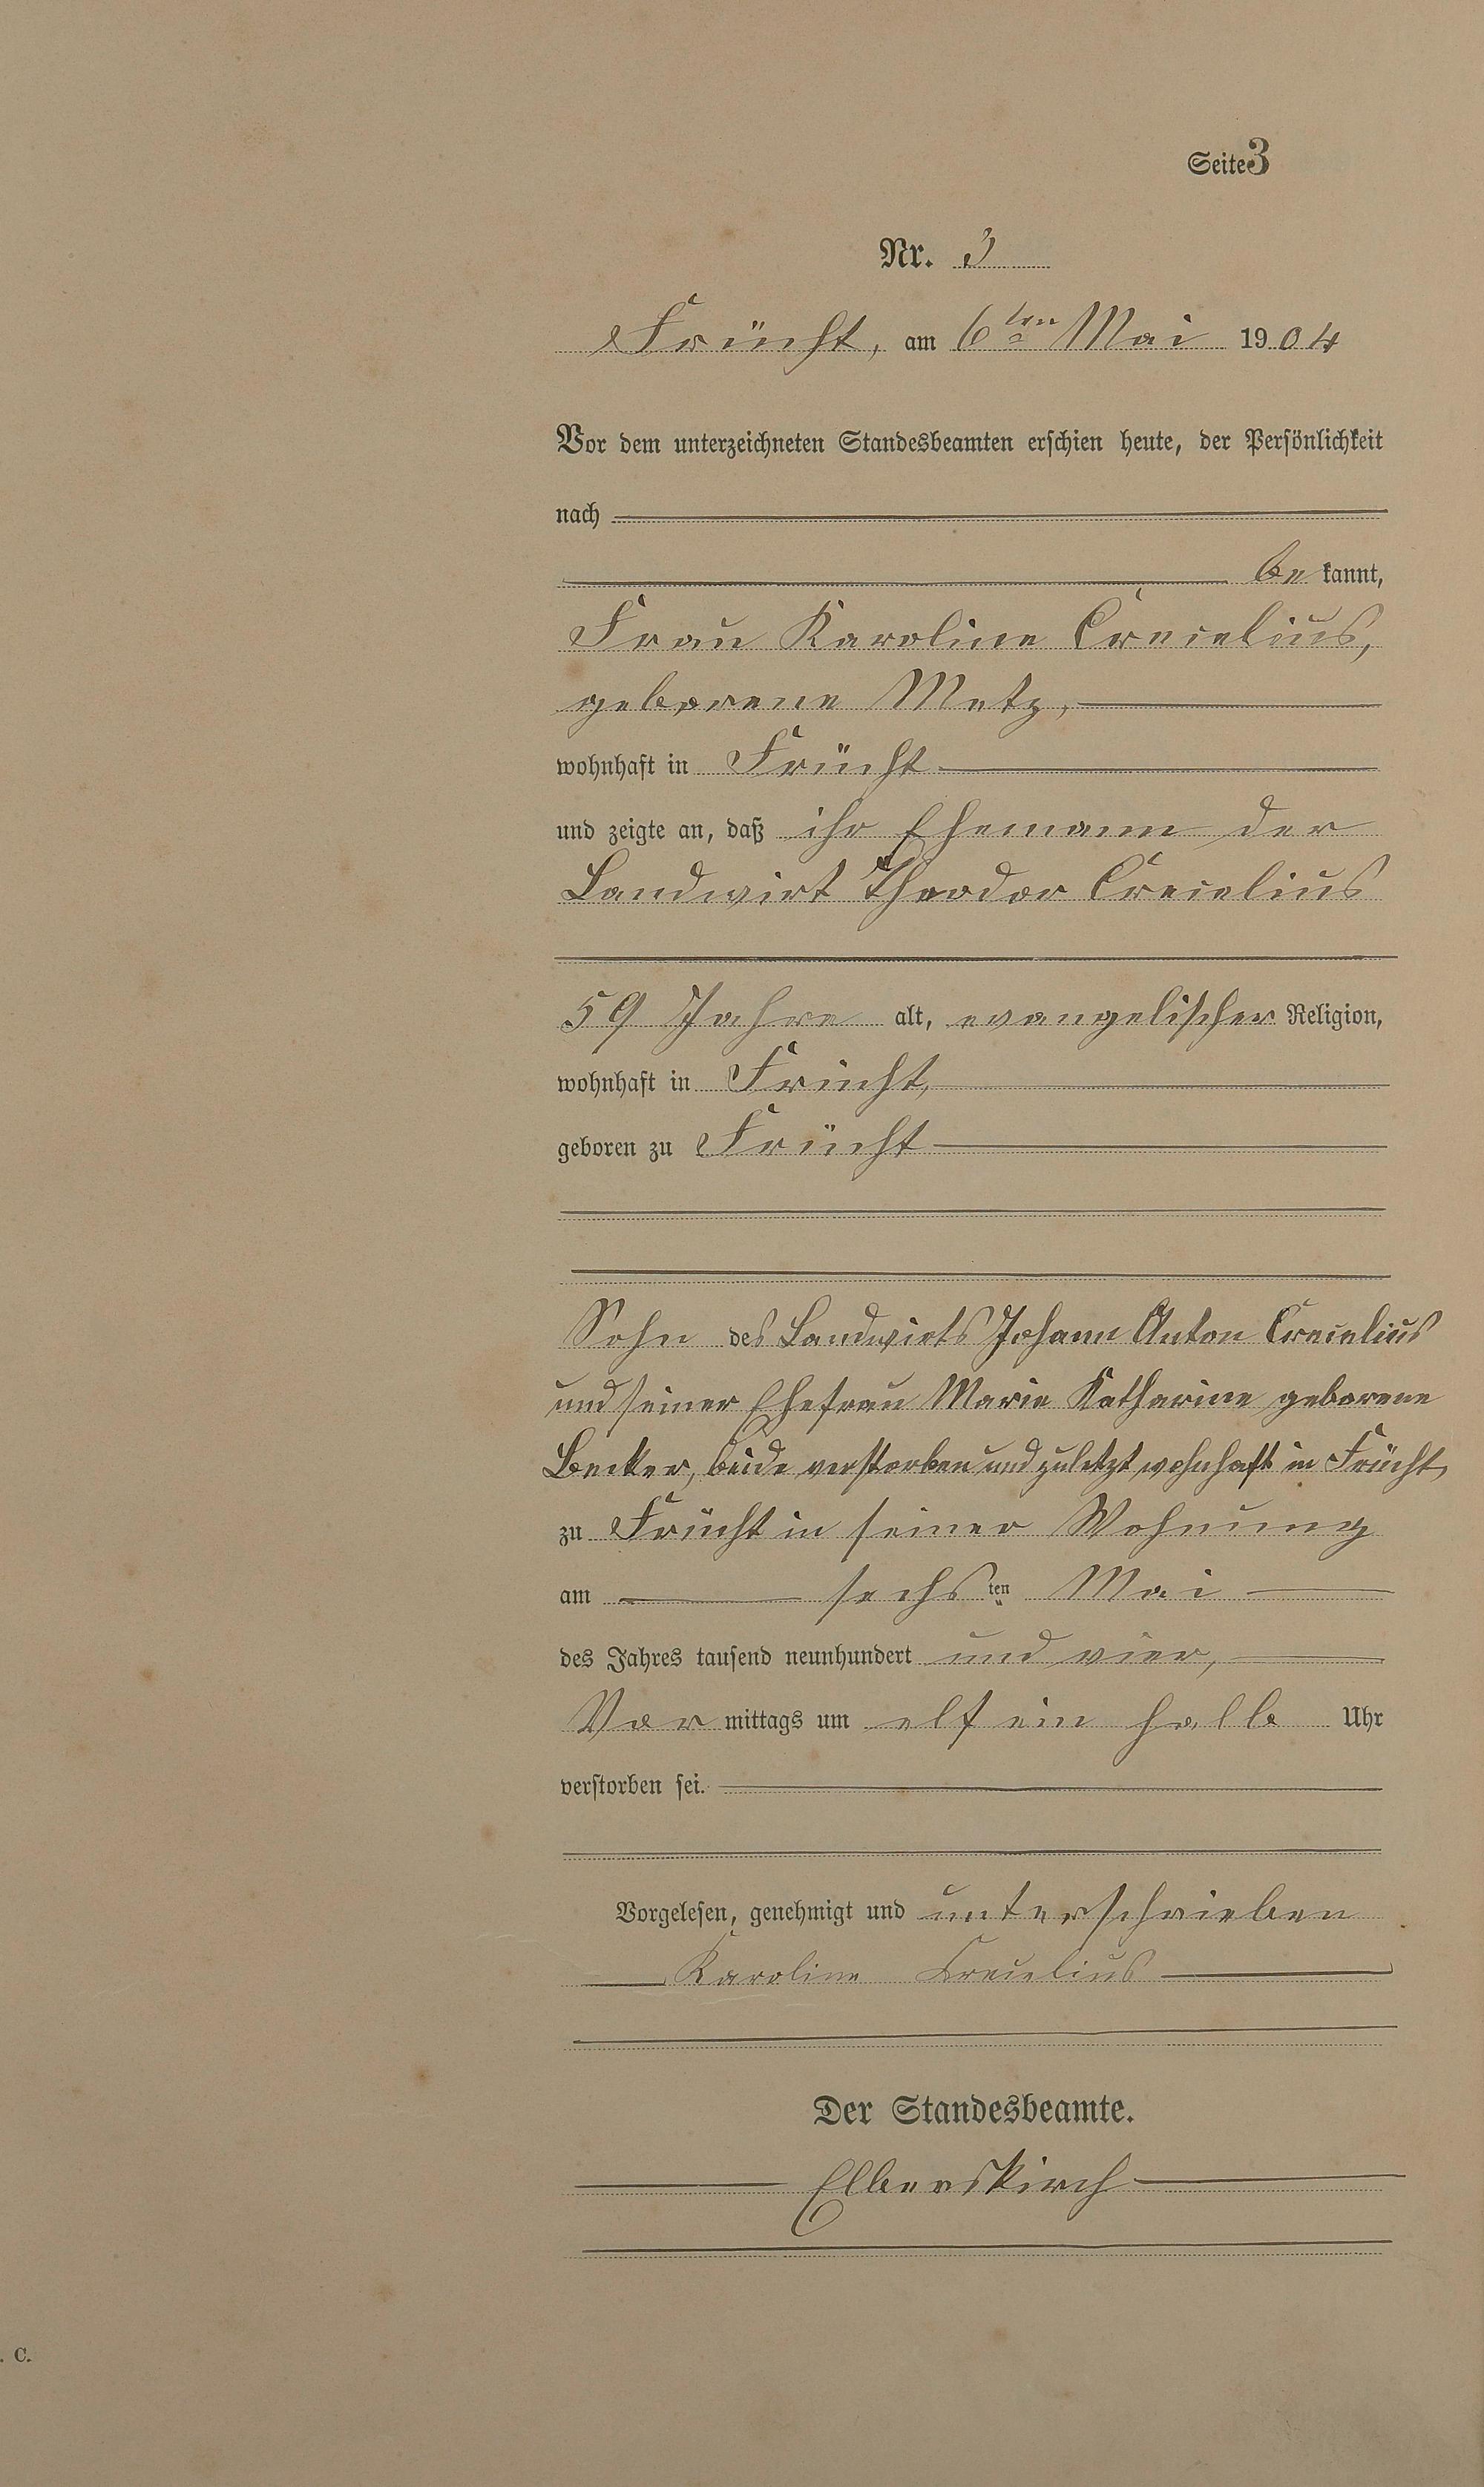 Seite 3
Nr. 3
Frücht, am 6ten Mai 1904
Vor dem unterzeichneten Standesbeamten erschien heute, der Persönlichkeit
nach
be kannt,
Frau Karoline Crecelius,
geborene Metz,
wohnhaft in Frücht
und zeigte an, daß ihr Ehemann der
Landwirt Theodor Crecelius
59 Jahre alt, evangelischer Religion,
wohnhaft in Frücht,
geboren zu Frücht
Sohn des Landwirts Johann Anton Crecelius
und seiner Ehefrau Marie Katharine geborene
Becker, beide verstorben und zuletzt wohnhaft in Frücht,
zu Frücht in seiner Wohnung
am sechsten Mai
des Jahres tausend neunhundert und vier,
Vor mittags um elf ein halb Uhr
verstorben sei.
Vorgelesen, genehmigt und unterschrieben
Karoline Crecelius
Der Standesbeamte.
Elberskirch
. C.